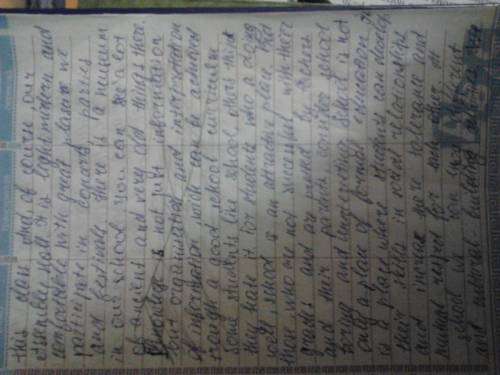 this class and of course our
assembly hall it is light, modern and
comfortable with great pleasure we
participate in concerts, parties
and festivals there is a museum
in our school you can see a lot
of ancient and very old things there
Knowledge is not just information
but organisation and interpretation
of information wich can be achieved
rough a good school curriculum
some students like school, others think
they hate it for students who a doing
well, school is an attractive place, but
those, who are not successful with there
grades and are nervous by teachers
and their parents consider school
boring and uninteresting School is not
only a place of formal education, it
is a place where students can develop
their skills in social relationships
and increase more tolerance and
mutual respect for each other at
school we can
and school building